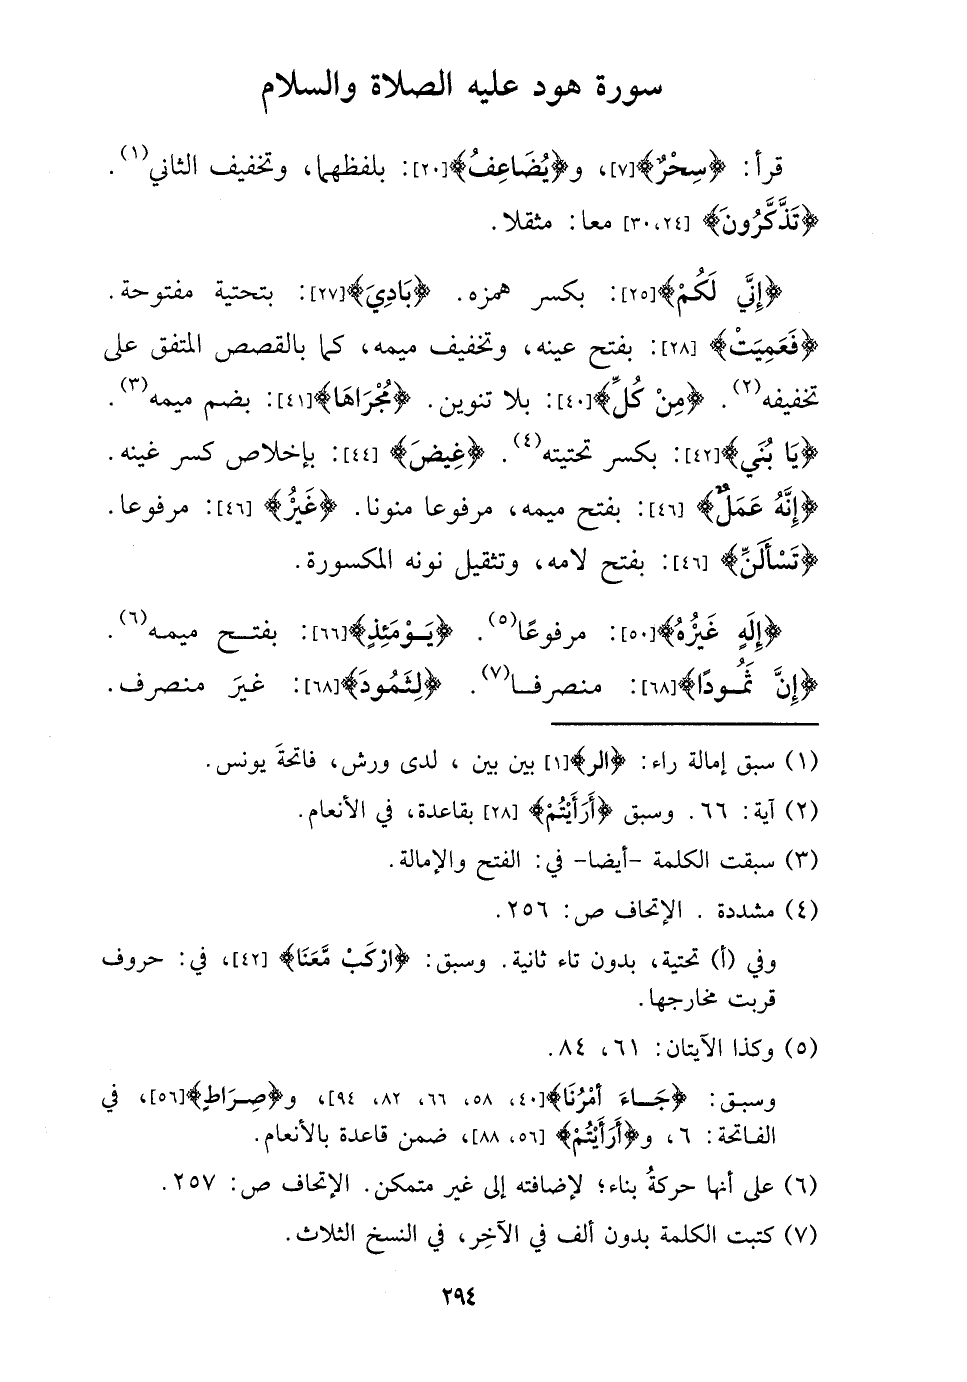 سورة هود عليه الصلاة والسلام
قرأ: ﴿سِحْرٌ﴾[٧]، و﴿يُضَاعِفُ﴾[٢٠]: بلفظهما، وتخفيف الثاني(١).
﴿تَذَّكَّرُونَ﴾ [٢٤،٣٠] معا: مثقلا.
﴿إِنَّي لَكُمْ﴾[٢٥]: بكسر همزه. ﴿بَادِيَ﴾[٢٧]: بتحتية مفتوحة.
﴿فَعَمِيَتْ﴾ [٢٨]: بفتح عينه، وتخفيف ميمه، كما بالقصص المتفق على
تخفيفه(٢). ﴿مِنْ كُلِّ﴾[٤٠]: بلا تنوين. ﴿مُجْرَاهَا﴾[٤١]: بضم ميمه(٣).
﴿يَا بُنَي﴾[٤٢]: بكسر تحتيته(٤). ﴿غِيضَ﴾ [٤٤]: بإخلاص كسر غينه.
﴿إِنَّهُ عَمَلٌ﴾ [٤٦]: بفتح ميمه، مرفوعا منونا. ﴿غَيْرُ﴾ [٤٦]: مرفوعا.
﴿تَسْأَلَنِّ﴾ [٤٦]: بفتح لامه، وتثقيل نونه المكسورة.
﴿إِلَهٍ غَيْرُهُ﴾[٥٠]: مرفوعًا(٥). ﴿يَوْمَئِذٍ﴾[٦٦]: بفتح ميمه(٦).
﴿إِنَّ ثَمُودًا﴾[٦٨]: منصرفا(٧). ﴿لِثَمُودَ﴾[٦٨]: غيرَ منصرف.
(١) سبق إمالة راء: ﴿الر﴾[١] بين بين ، لدى ورش، فاتحةَ يونس.
(٢) آية: ٦٦. وسبق ﴿أَرَأَيْتُمْ﴾ [٢٨] بقاعدة، في الأنعام.
(٣) سبقت الكلمة -أيضا- في: الفتح والإمالة.
(٤) مشددة . الإتحاف ص: ٢٥٦.
وفي (أ) تحتية، بدون تاء ثانية. وسبق: ﴿ارْكَبْ مَّعَنَا﴾ [٤٢]، في: حروف
قربت مخارجها.
(٥) وكذا الآيتان: ٦١، ٨٤.
وسبق: ﴿جَاءَ أَمْرُنَا﴾[٤٠، ٥٨، ٦٦، ٨٢، ٩٤]، و﴿صِرَاطٍ﴾[٥٦]، في
الفاتحة: ٦، و﴿أَرَأَيْتُمْ﴾ [٥٦، ٨٨]، ضمن قاعدة بالأنعام.
(٦) على أنها حركةُ بناء؛ لإضافته إلى غير متمكن. الإتحاف ص: ٢٥٧.
(٧) كتبت الكلمة بدون ألف في الآخِر، في النسخ الثلاث.
٢٩٤